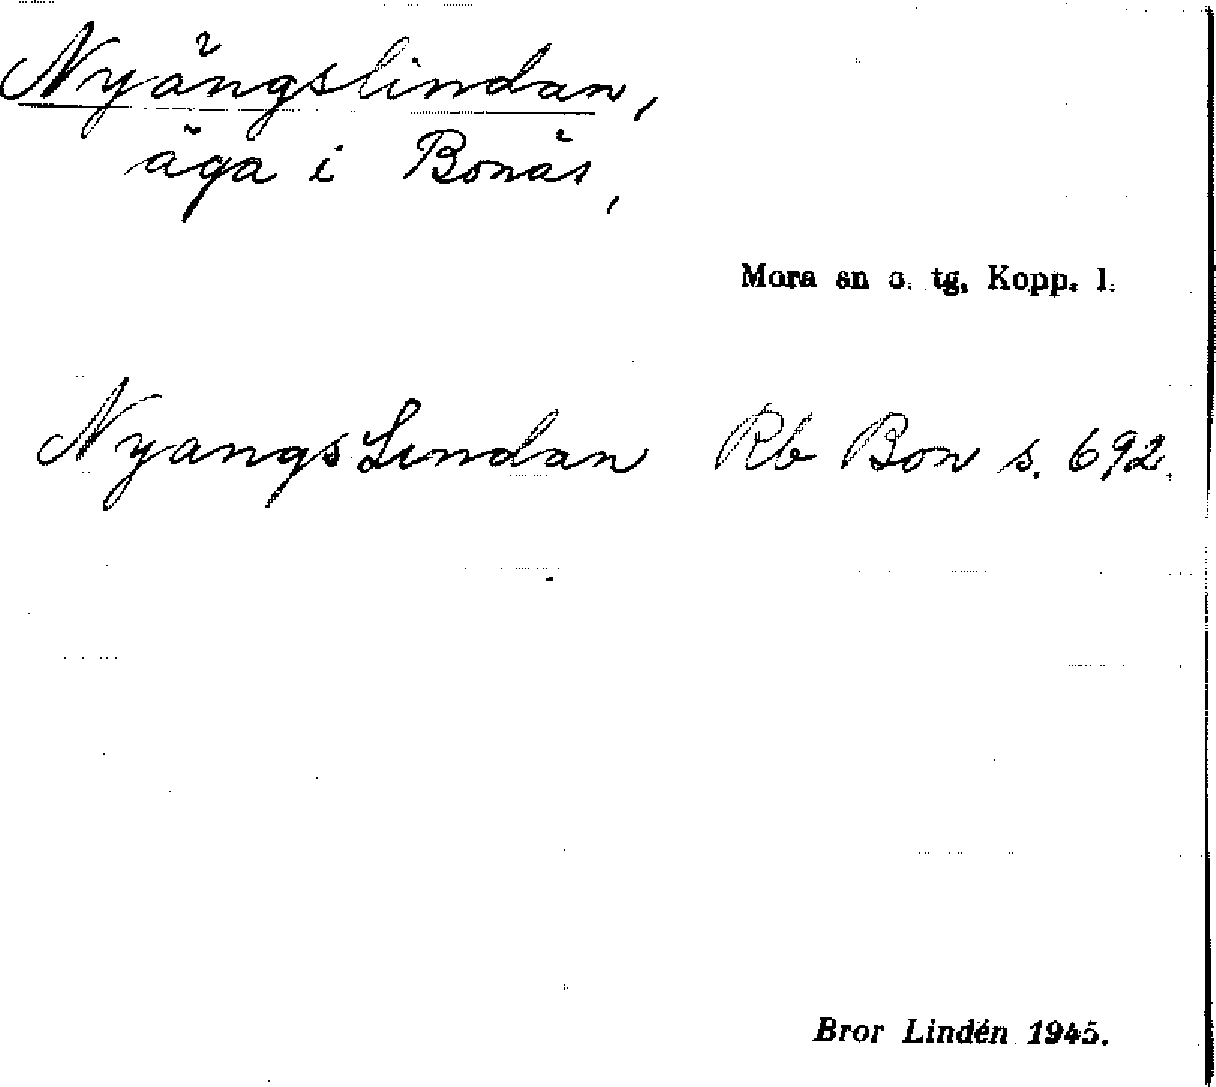 Nyängslindan,
äga i Bonäs,
Mora sn o. tg, Kopp. l.
Nyangs Lindan Rb Bon s. 692.
Bror Lindén 1945.